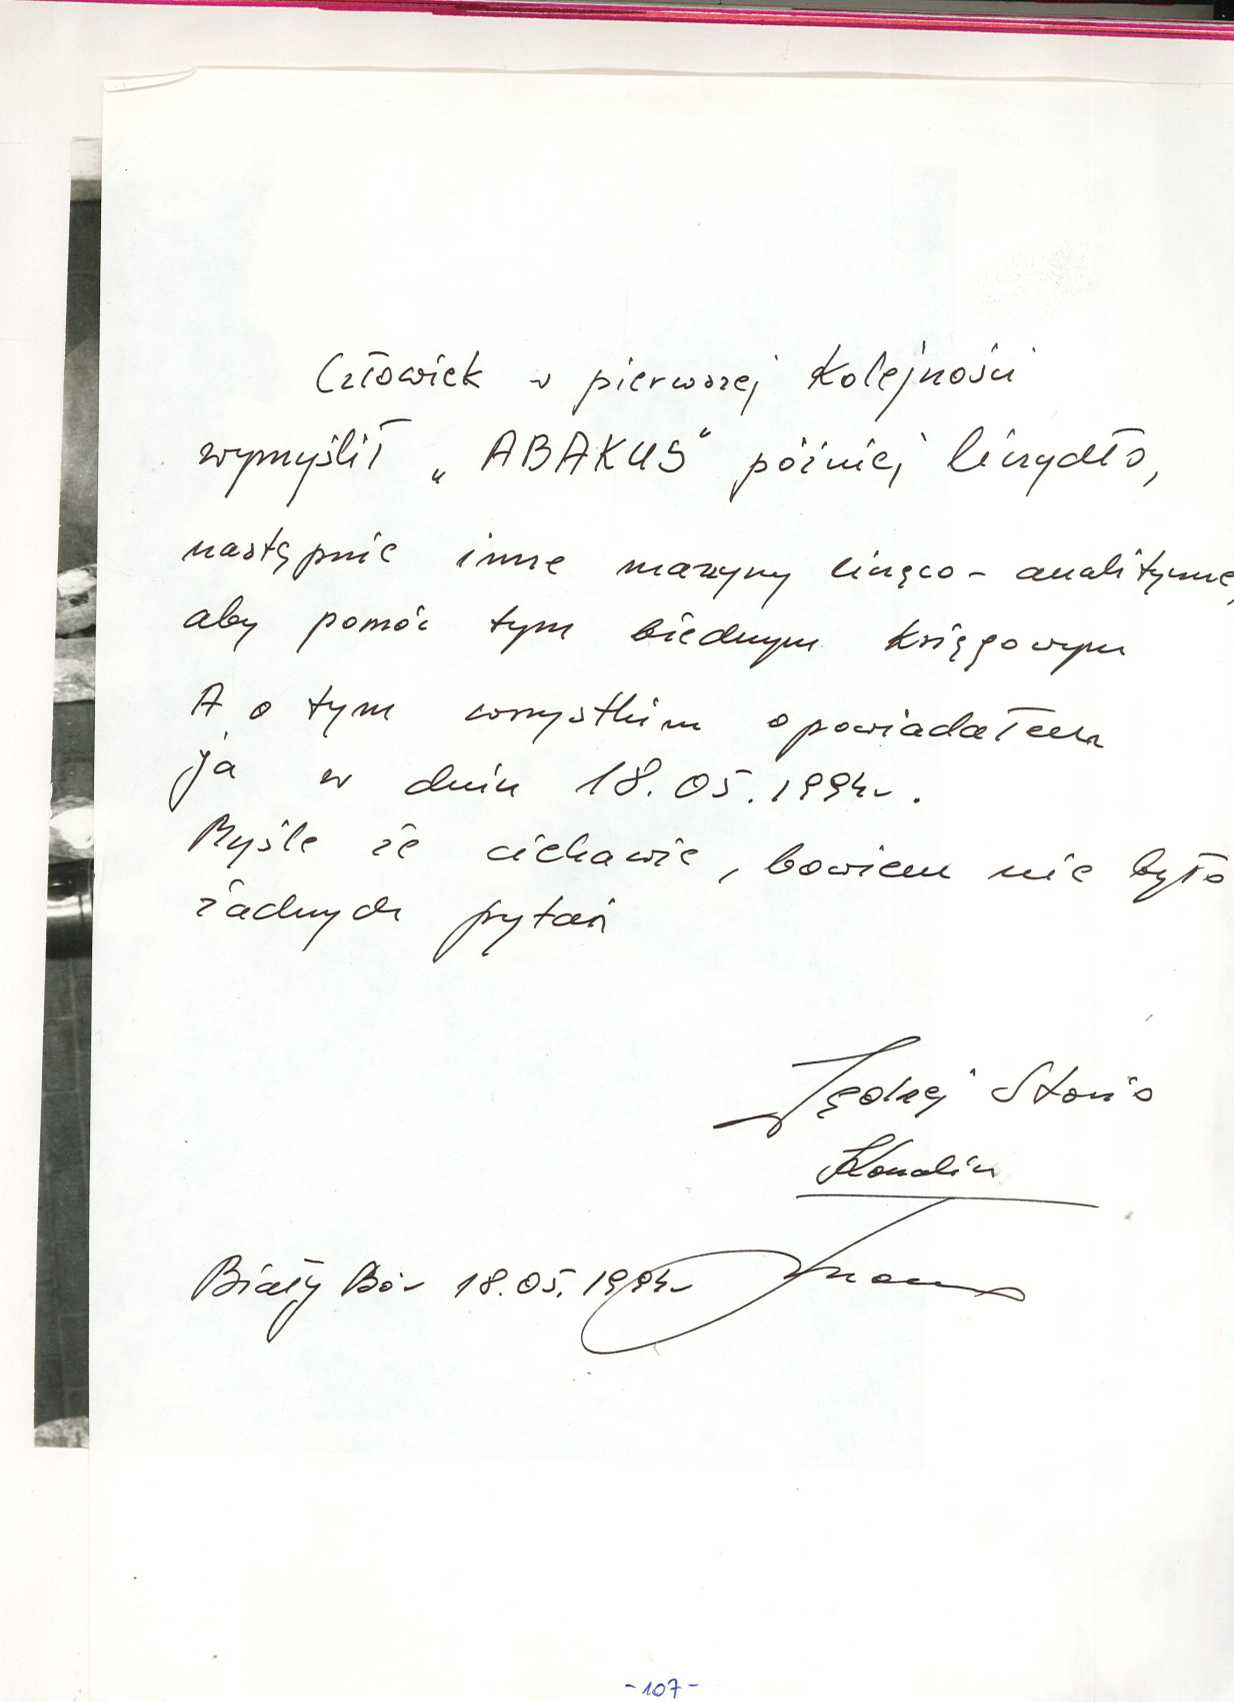 Człowiek w pierwszej kolejności
wymyślił „ABAKUS” później liczydło,
następnie inne maszyny licząco - analityczne,
aby pomóc tym biednym księgowym
A o tym wszystkim opowiadałem
ja w dniu 18.05.1994r.
Myślę że ciekawie, bowiem nie było
żadnych pytań
Jędrzej Stonio
Biały Bór 18.05.1994r
-107-